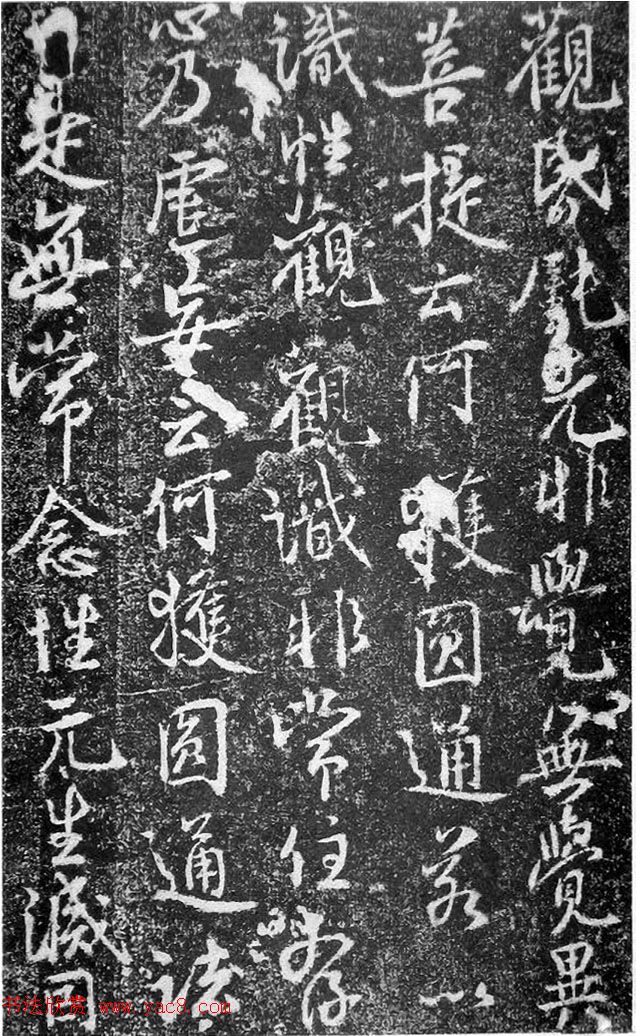 觀昏鈍先非覺無覺異
菩提云何獲圓通若以
識性觀觀識非常住存
心乃虛妄云何獲圓通諸
行是無常念性元生滅因
书法欣赏 www.yac8.com